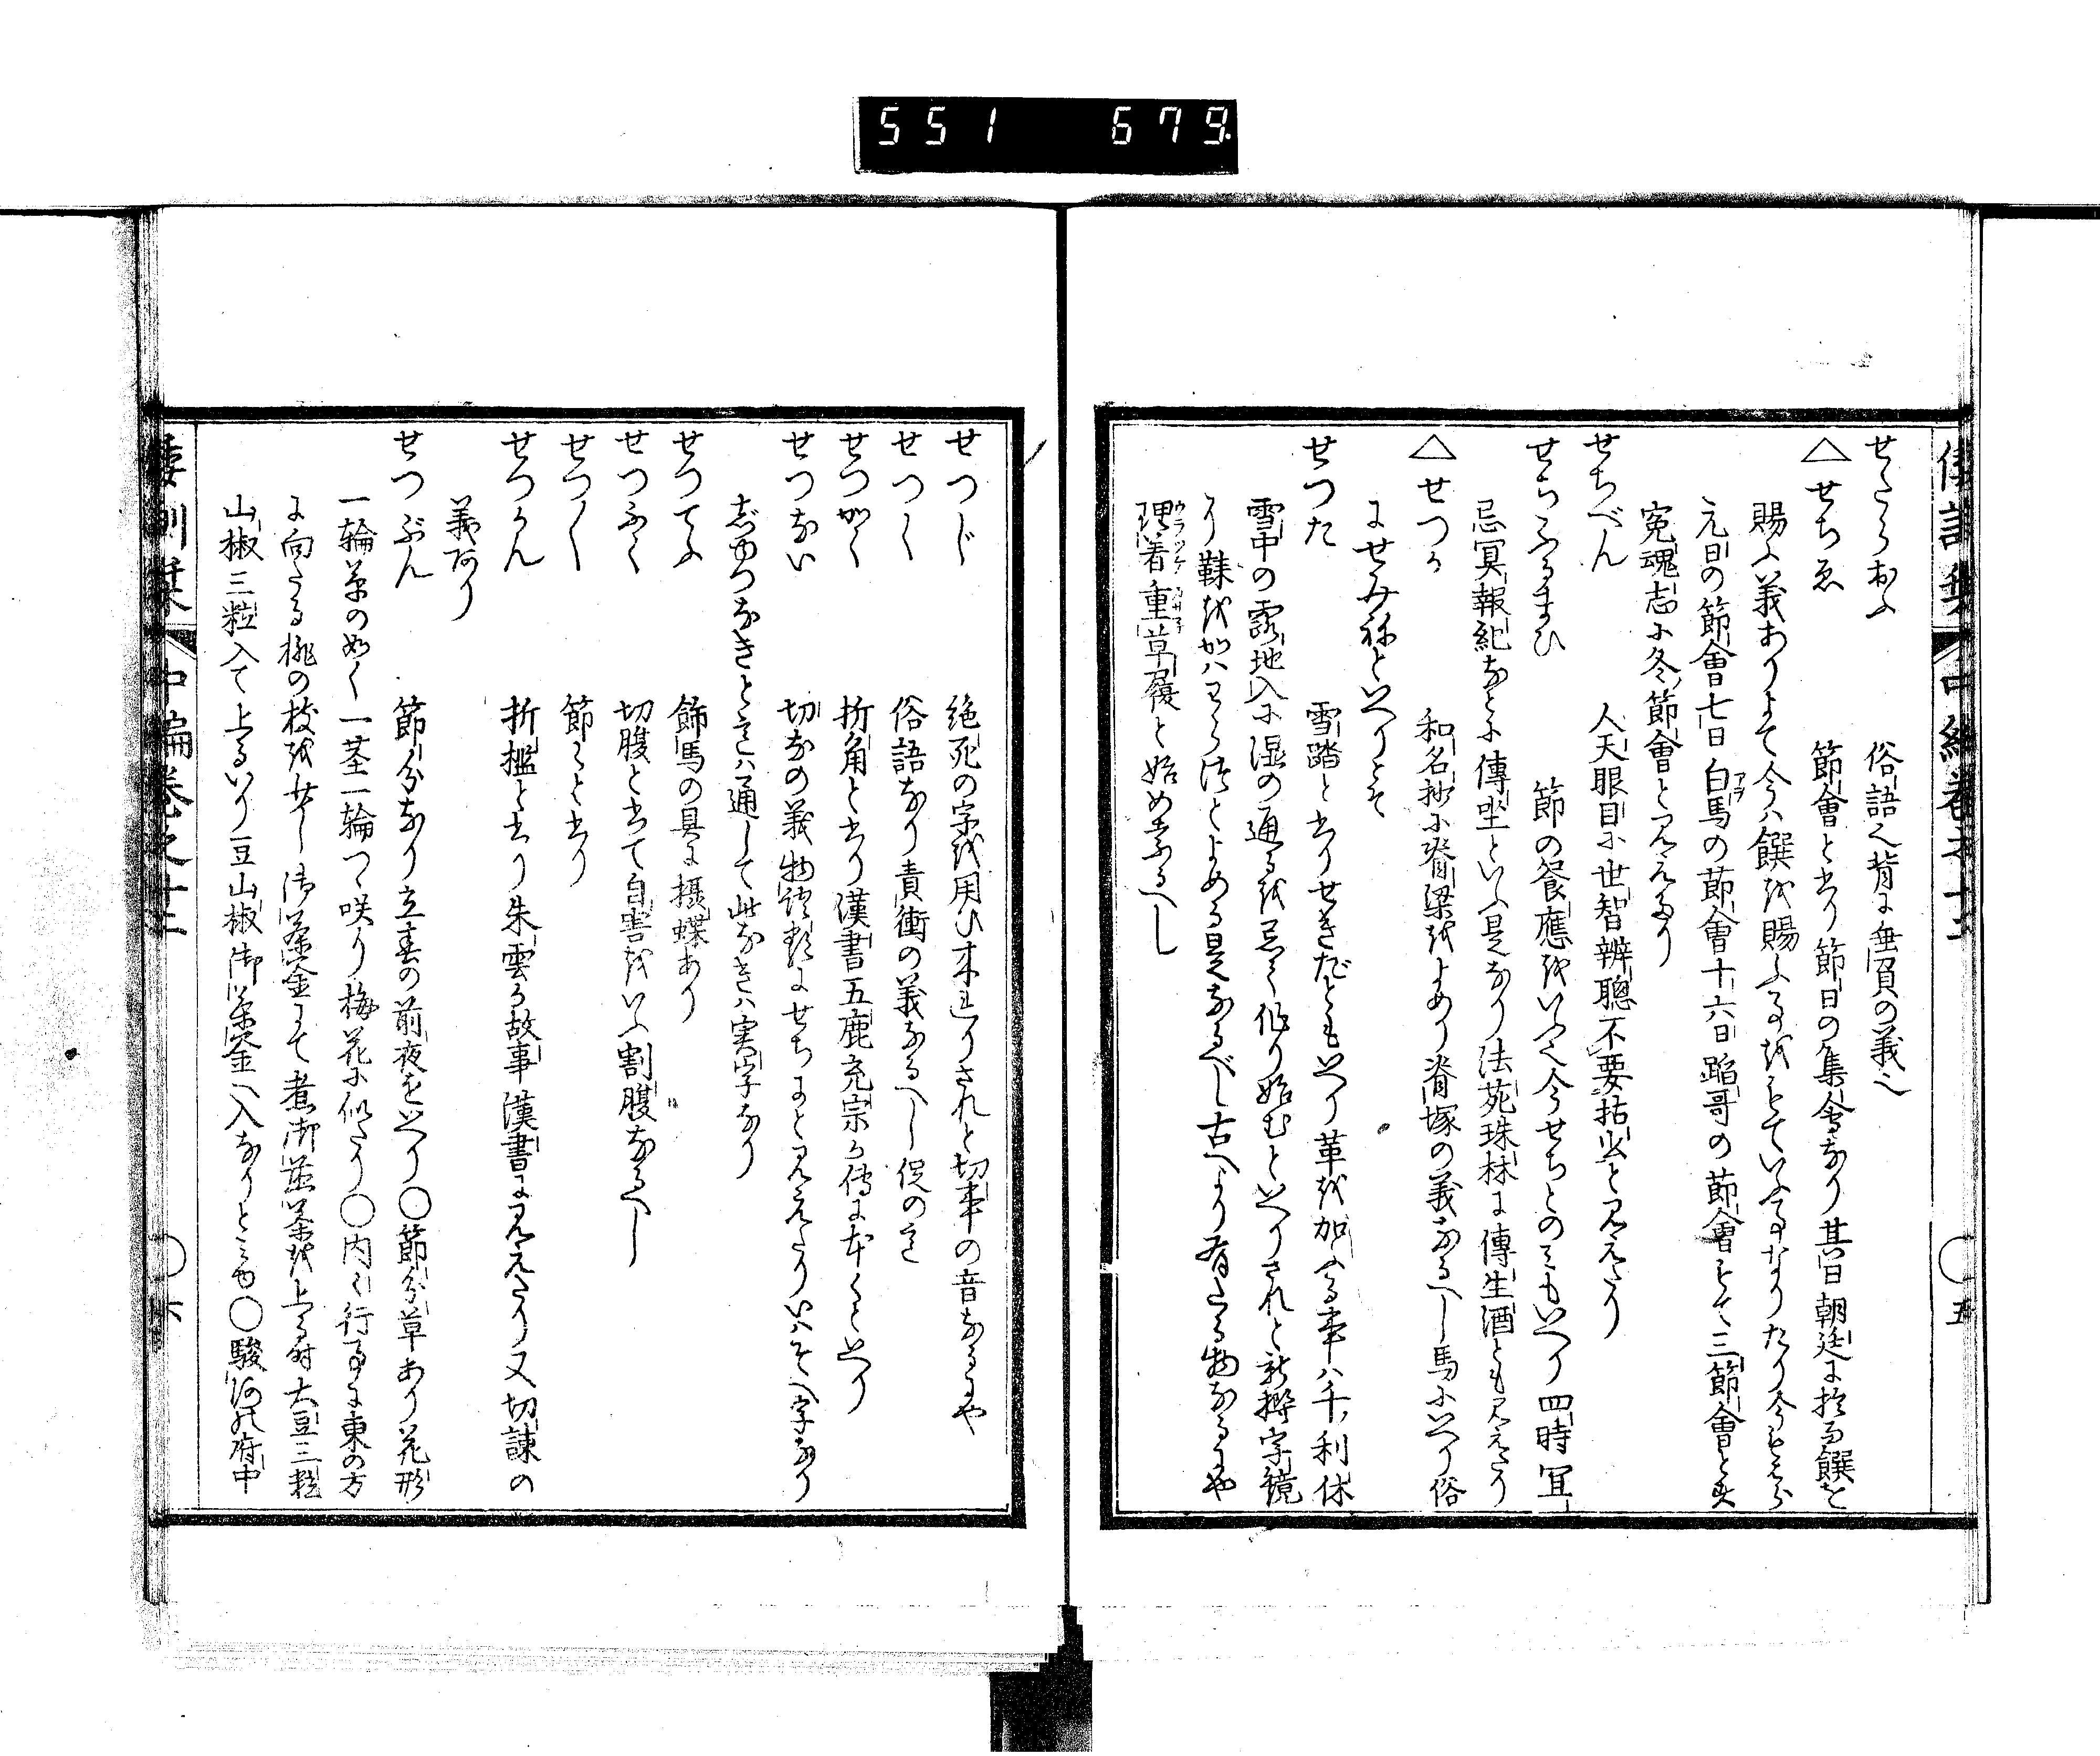 551 679
せたらおふ 俗語也背に垂負の義也
△せちゑ 節會と書り節日の集會なり其日朝廷に於る饌を
賜ふ義ありよて今ハ饌を賜ふるをもていふ事なりたり
元日の節會七日白馬の節會十六日蹈哥の節會もて三節會と
寃魂志に冬節會と見えたり
せちべん 人天眼目に世智辨聰不要拈出と見えたり
せちふるまひ 節の餐應をいふ也今せちとのミもいへり四時冝
忌冥報紀なとに傳坐といふ是なり法苑珠林に傳生酒とも見えたり
△せつか 和名抄に脊梁をよめり脊塚の義なるへし馬にいへり俗
にせみねといへりとそ
せつた 雪踏と書りせきだともいへり革を加ふる事ハ千ノ利休
雪中の露地入に湿の通るを忌て作り始むといへりされと新撰字鏡
に靺をかハわらくつとよめる是なるべし古へより有たる物なるにや
理着重草履と始め
せつじ 絶死の字を用ひ来れりされと切事の音なるにや
せつく 俗語なり責衝の義なるへし促のこゝろ
せつかく 折角と書り漢書五鹿充宗か傳に本くといへり
せつない 切なの義物語類にせちにと見えたりいハそへ字なり
じゆつなきと言ハ通して此なきハ実字なり
せつてふ 飾馬の具に摂蝶あり
せつふく 切腹と書て自害をいふ割腹なるへし
せつ〱 節々と書り
せつかん 折檻と書り朱雲か故事漢書に見えたり又切諫の
義あり
せつぶん 節分なり立春の前夜をいへり〇節分草あり花形
一輪草の如く一茎一輪つゝ咲り梅花に似たり〇内々行事に東の方
に向たる桃の枝を 御茶釜にて煮御茶を上る時大豆三粒
山椒三粒入て上るいり豆山椒御茶釜へ入なりとミゆ〇駿河の府中
倭訓栞 中編巻之十二 〇六
〇五